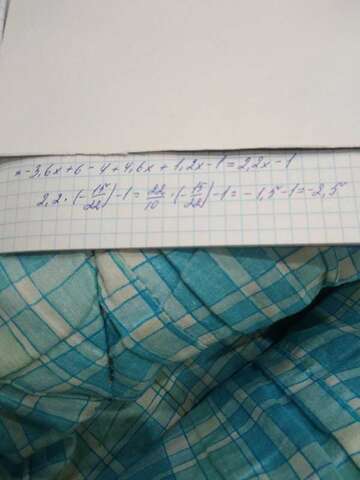 = -3,6x+6-4+4,6x+1,2x-1=2,2x-1
2,2·(-15/22)-1=22/10·(-15/22)-1=-1,5-1=-2,5